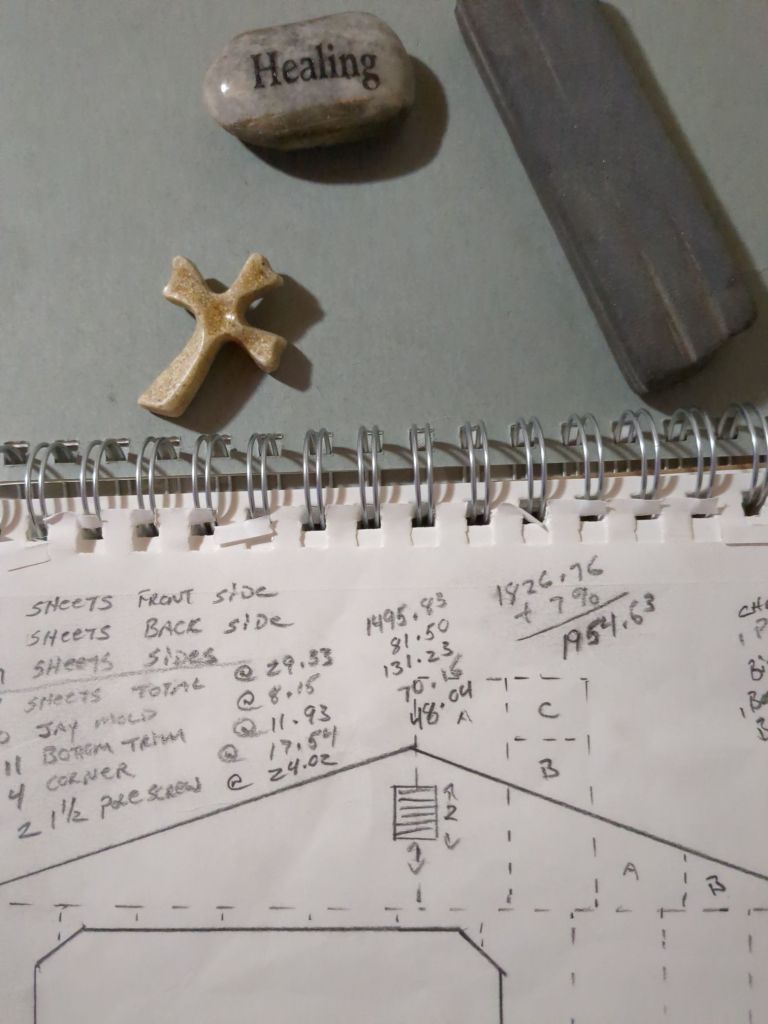 Healing
SHEETS FRONT SIDE
SHEETS BACK SIDE
SHEETS SIDES
SHEETS TOTAL @ 29.33 1495.83
JAY MOLD @ 8.15 81.50
11 BOTTOM TRIM @ 11.93 131.23
4 CORNER @ 17.54 70.16
2 1 1/2 POLE SCREW @ 24.02 48.04
1826.76
+ 7%
1954.63
A
C
B
2
A
B